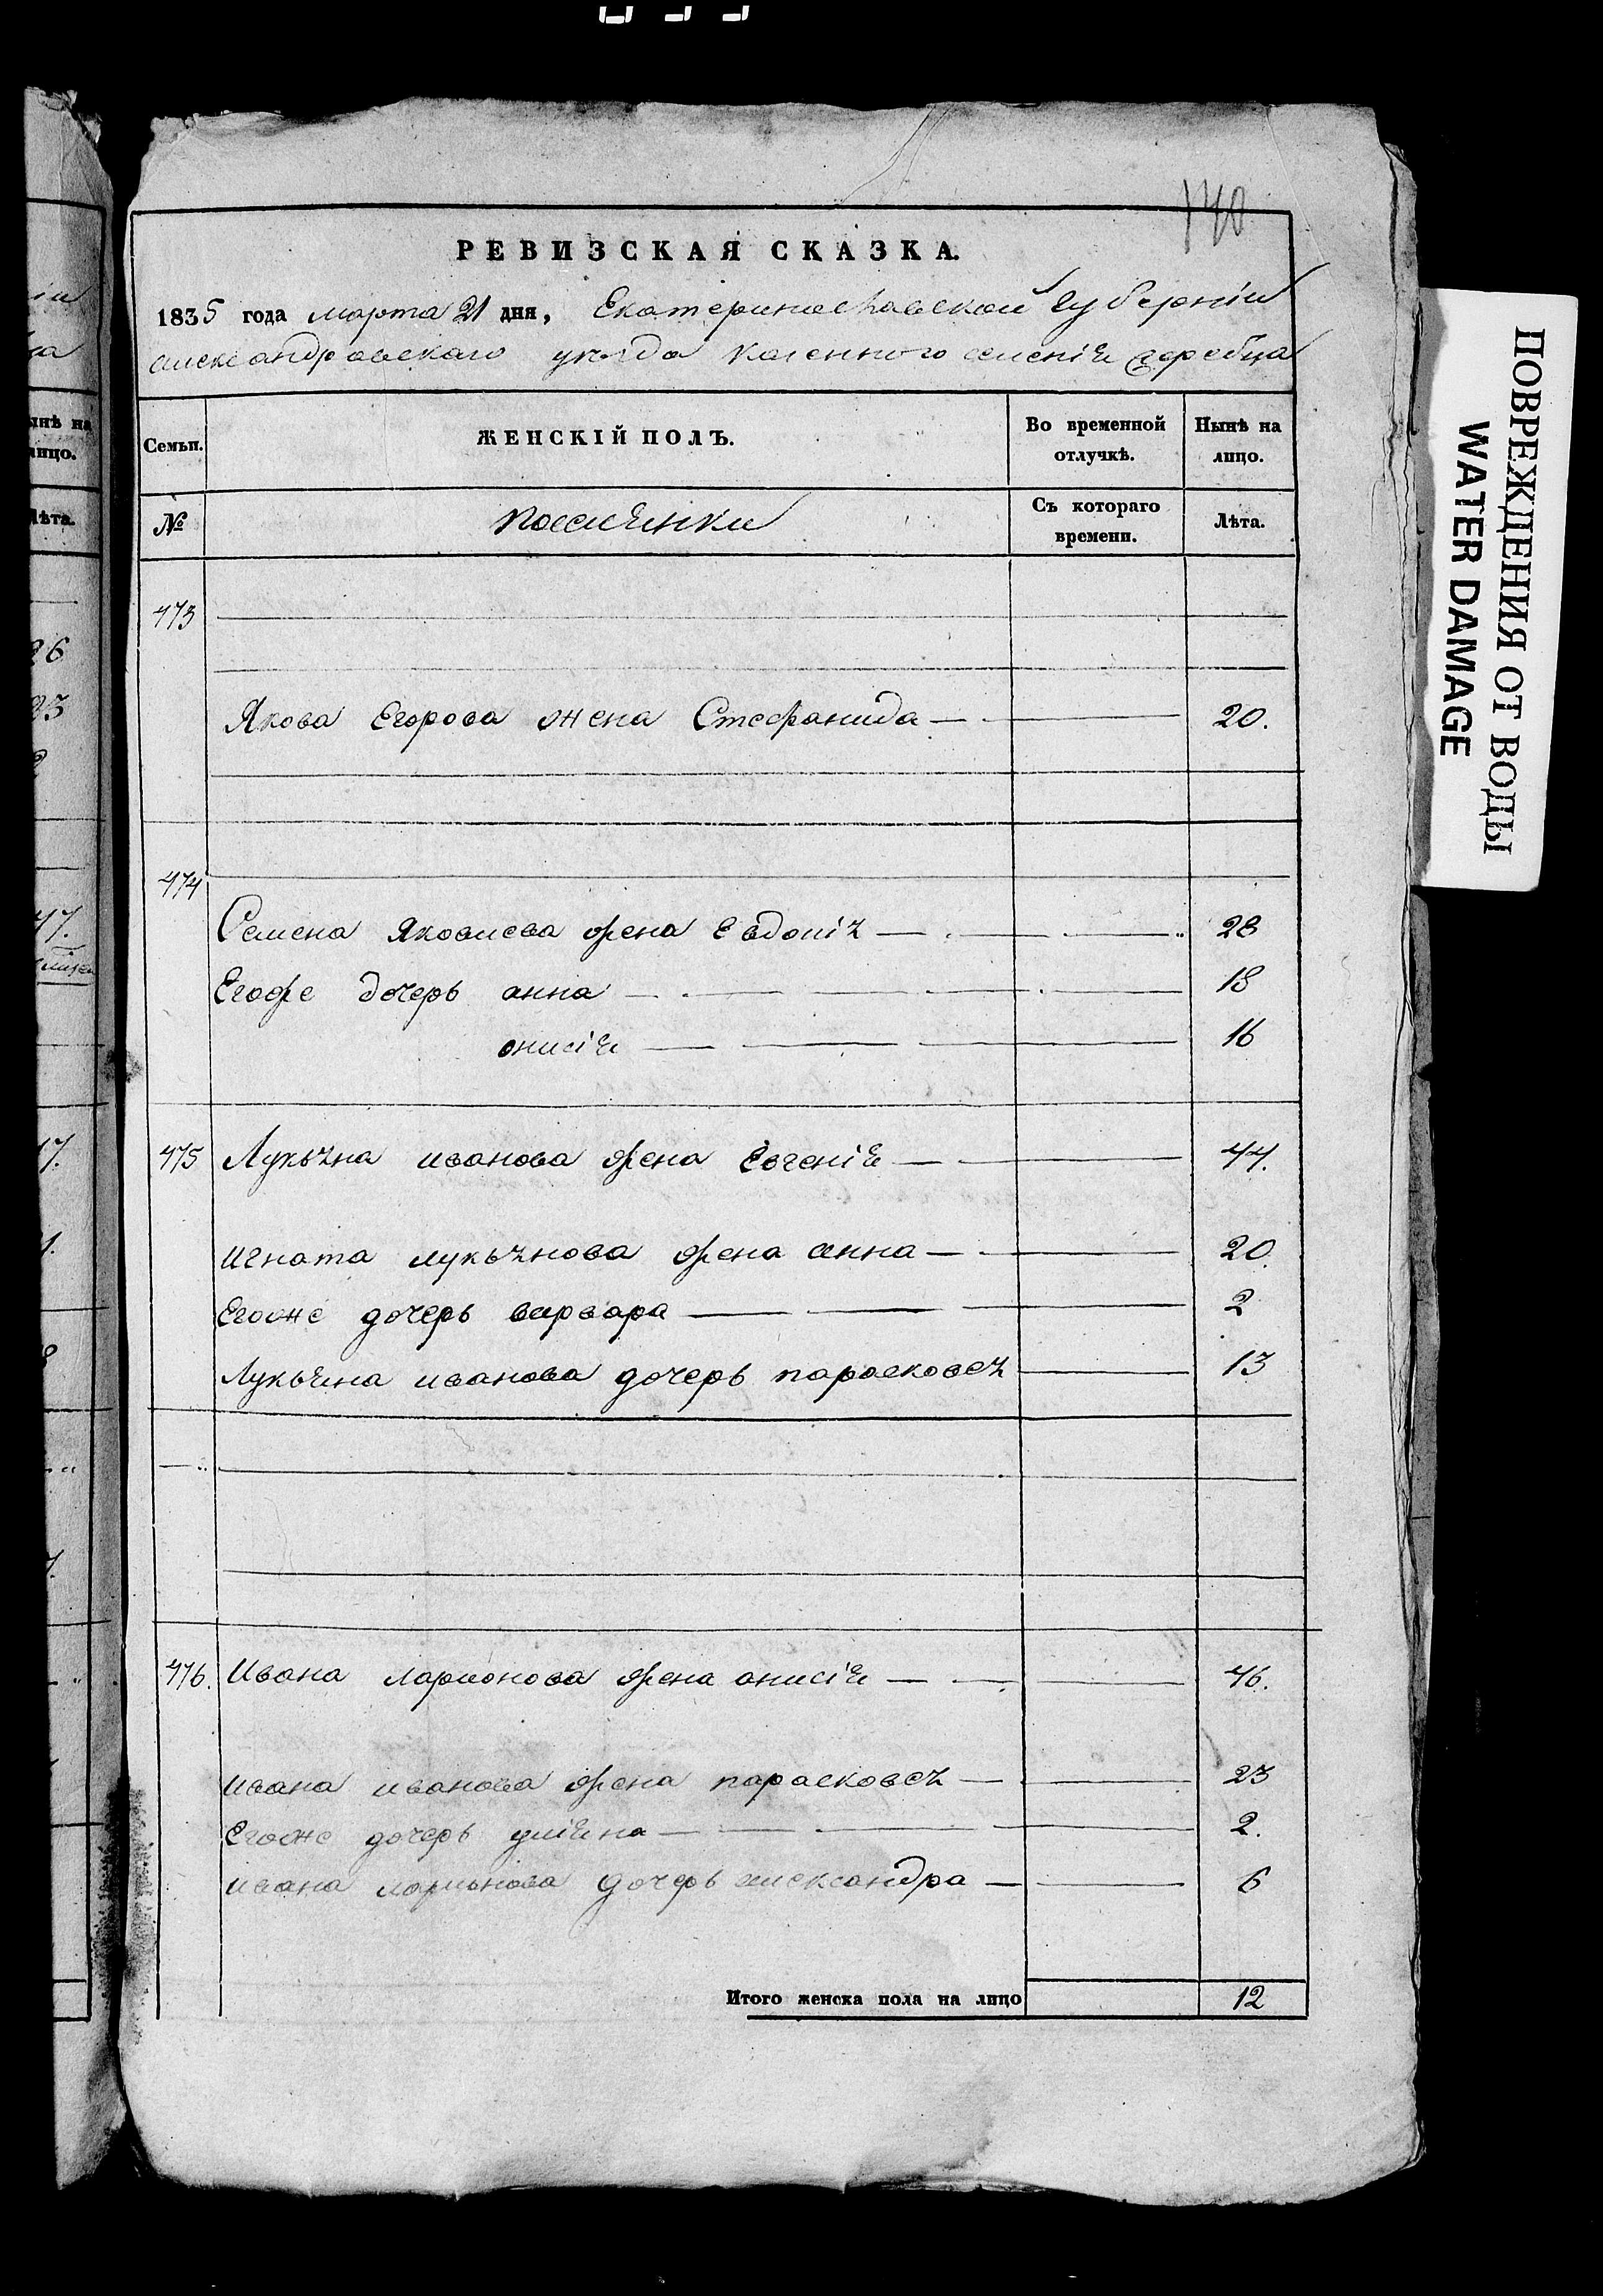 170
РЕВИЗСКАЯ СКАЗКА.
1835 года марта 21 дня, Екатеринославской губерніи
александровскаго уезда казенного селенія жеребца
Семьи.
ЖЕНСКІЙ ПОЛЪ.
Во временной отлучкѣ.
Нынѣ на лицо.
№
поселянки
Съ котораго времени.
Лѣта.
473
Якова Егорова жена Стефанида 20.
474
Семена Яковлева жена Евдокія 28
Егоже дочерь анна 18
онисія 16
475 Лукьяна иванова жена Евгенія 44.
игната лукьянова жена анна 20.
Егоже дочерь варвара 2
Лукьяна иванова дочерь парасковея 13
476. Ивана ларионова жена анисія 46.
ивана иванова жена парасковея 23
Егоже дочерь уліяна 2.
ивана ларионова дочерь александра 6
Итого женска пола на лицо 12
ПОВРЕЖДЕНИЯ ОТ ВОДЫ
WATER DAMAGE